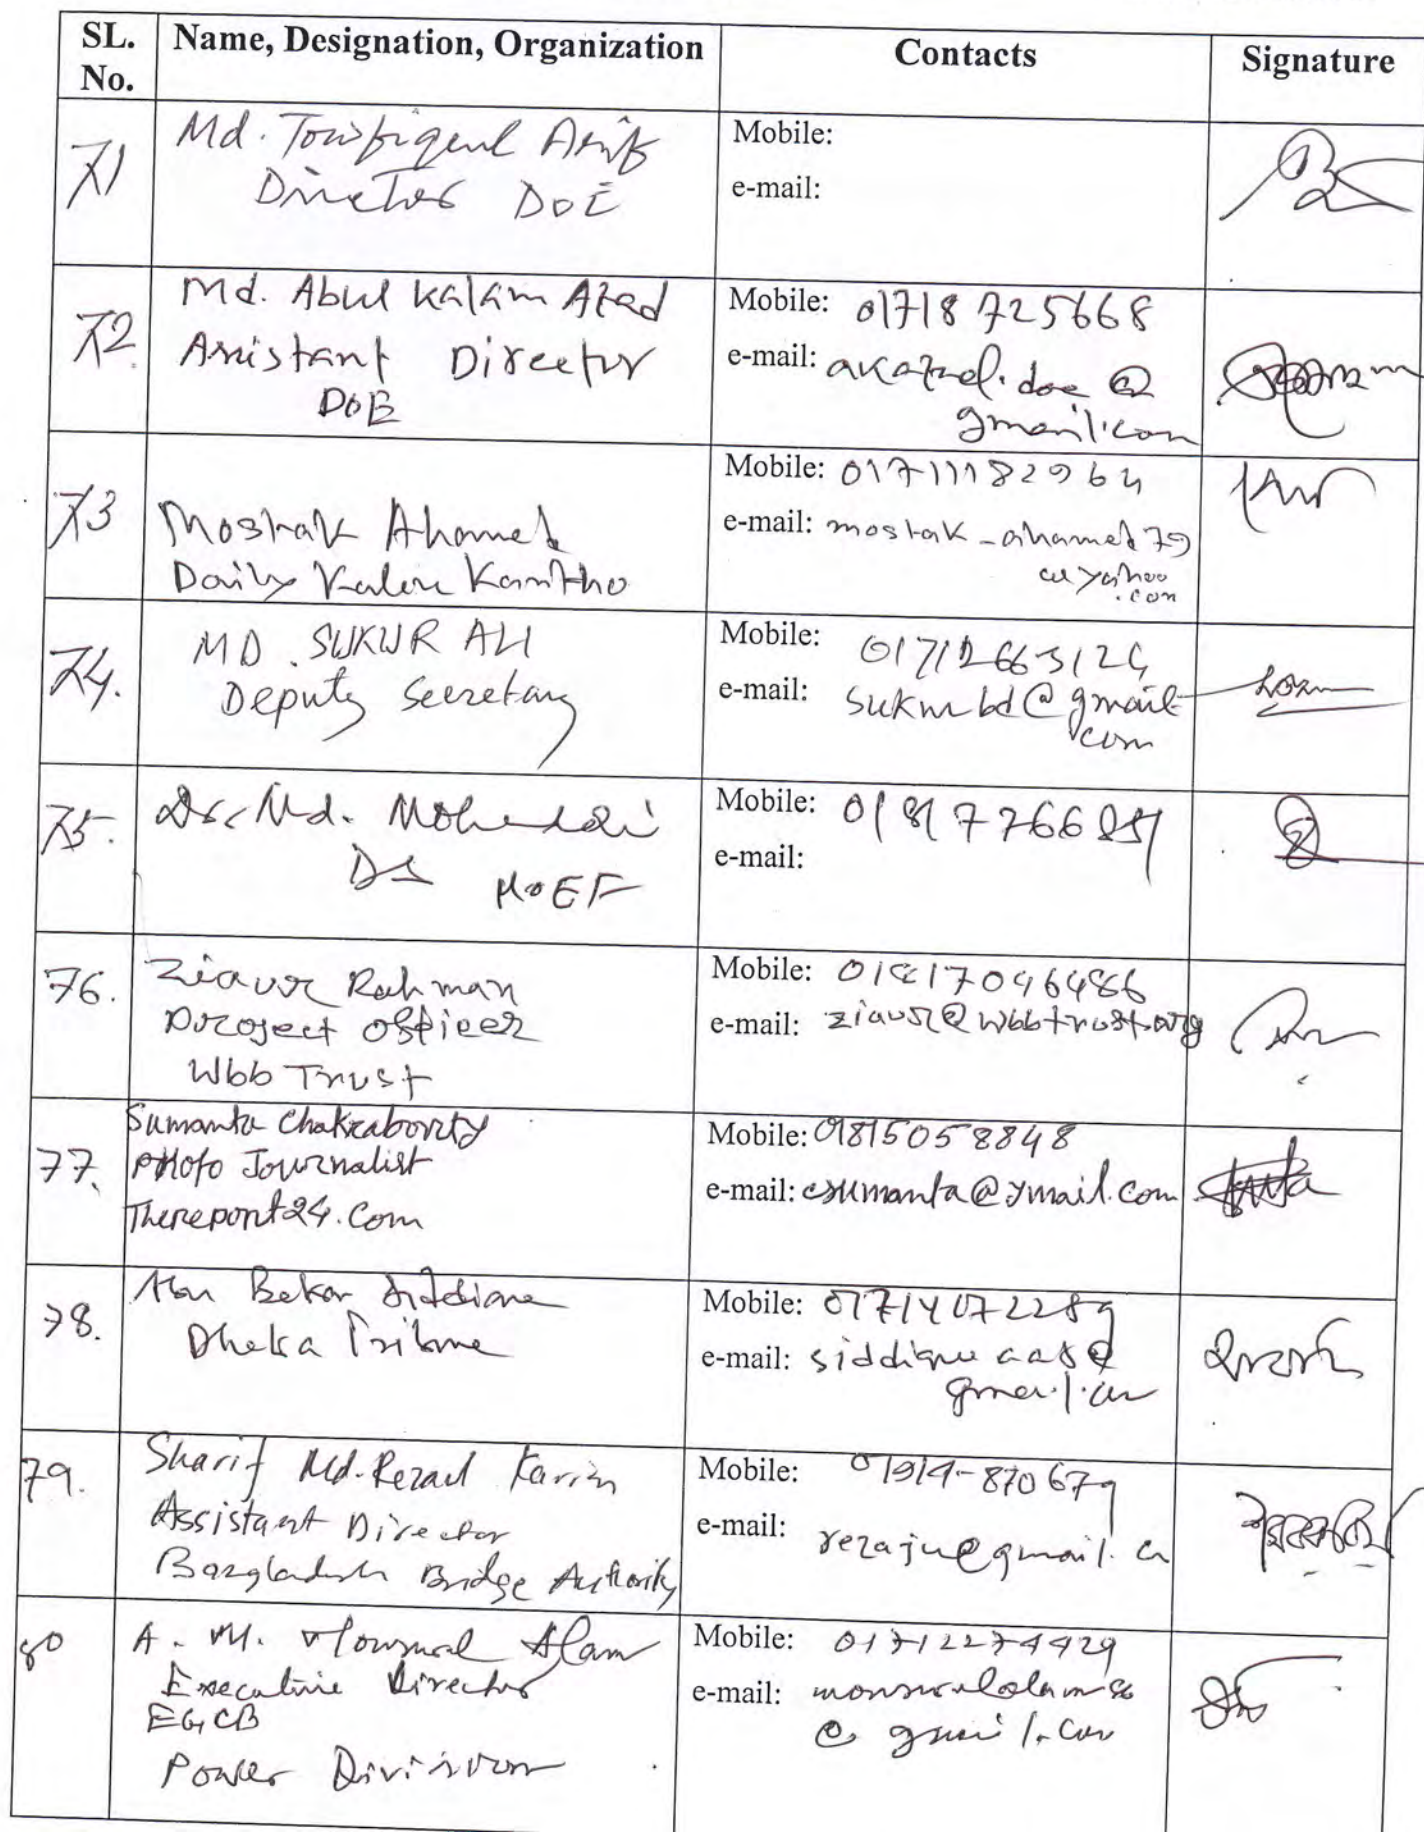 SL. No.
Name, Designation, Organization
Contacts
Signature
71
Md. Towfiqul Arif
Director DoE
Mobile:
e-mail:
72
Md. Abul Kalam Azad
Assistant Director
DoE
Mobile: 01718 725668
e-mail: akazad.doe@
gmail.com
73
Mostak Ahamed
Daily Kaler Kantho
Mobile:
e-mail: mostak_ahamed79
@yahoo
.com
74.
MD. SUKUR ALI
Deputy Secretary
Mobile:
e-mail: sukurbd@gmail.
com
75.
Dr. Md.
DS MoEF
Mobile:
e-mail:
76.
Ziaur Rahman
Project Officer
Wbb Trust
Mobile:
e-mail: ziaur@wbbtrust.org
77.
Sumanta Chakraborty
Photo Journalist
Thereport24.com
Mobile: 01815058848
e-mail: csumanta@ymail.com
78.
Abu Bakar Siddique
Dhaka Tribune
Mobile: 01714072289
e-mail:
gmail.com
79.
Sharif Md. Rezaul Karim
Assistant Director
Bangladesh Bridge Authority
Mobile: 01914-870679
e-mail: rezaju@gmail.com
80
A. M. Monsurul Alam
Executive Director
EGCB
Power Division
Mobile: 01712274429
e-mail:
@gmail.com